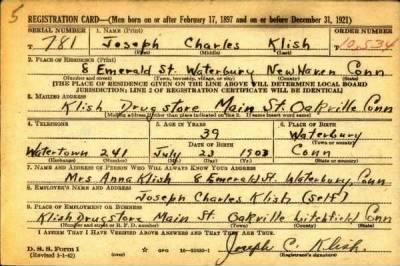 5
REGISTRATION CARD—(Men born on or after February 17, 1897 and on or before December 31, 1921)
SERIAL NUMBER 1. NAME (Print) ORDER NUMBER
T 781 Joseph Charles Klish 10,534
(First) (Middle) (Last)
2. PLACE OF RESIDENCE (Print)
8 Emerald St. Waterbury New Haven Conn
(Number and street) (Town, township, village, or city) (County) (State)
[THE PLACE OF RESIDENCE GIVEN ON THE LINE ABOVE WILL DETERMINE LOCAL BOARD
JURISDICTION; LINE 2 OF REGISTRATION CERTIFICATE WILL BE IDENTICAL]
3. MAILING ADDRESS
Klish Drug store Main St. Oakville Conn
[Mailing address if other than place indicated on line 2. If same insert word same]
4. TELEPHONE 5. AGE IN YEARS 6. PLACE OF BIRTH
39 Waterbury
DATE OF BIRTH (Town or county)
Watertown 241 July 23 1903 Conn
(Exchange) (Number) (Mo.) (Day) (Yr.) (State or country)
7. NAME AND ADDRESS OF PERSON WHO WILL ALWAYS KNOW YOUR ADDRESS
Mrs Anna Klish 8 Emerald St. Waterbury, Conn.
8. EMPLOYER'S NAME AND ADDRESS
Joseph Charles Klish (self)
9. PLACE OF EMPLOYMENT OR BUSINESS
Klish Drugstore Main St. Oakville Litchfield Conn
(Number and street or R. F. D. number) (Town) (County) (State)
I AFFIRM THAT I HAVE VERIFIED ABOVE ANSWERS AND THAT THEY ARE TRUE.
D. S. S. Form 1
(Revised 1-1-42) GPO Joseph C. Klish